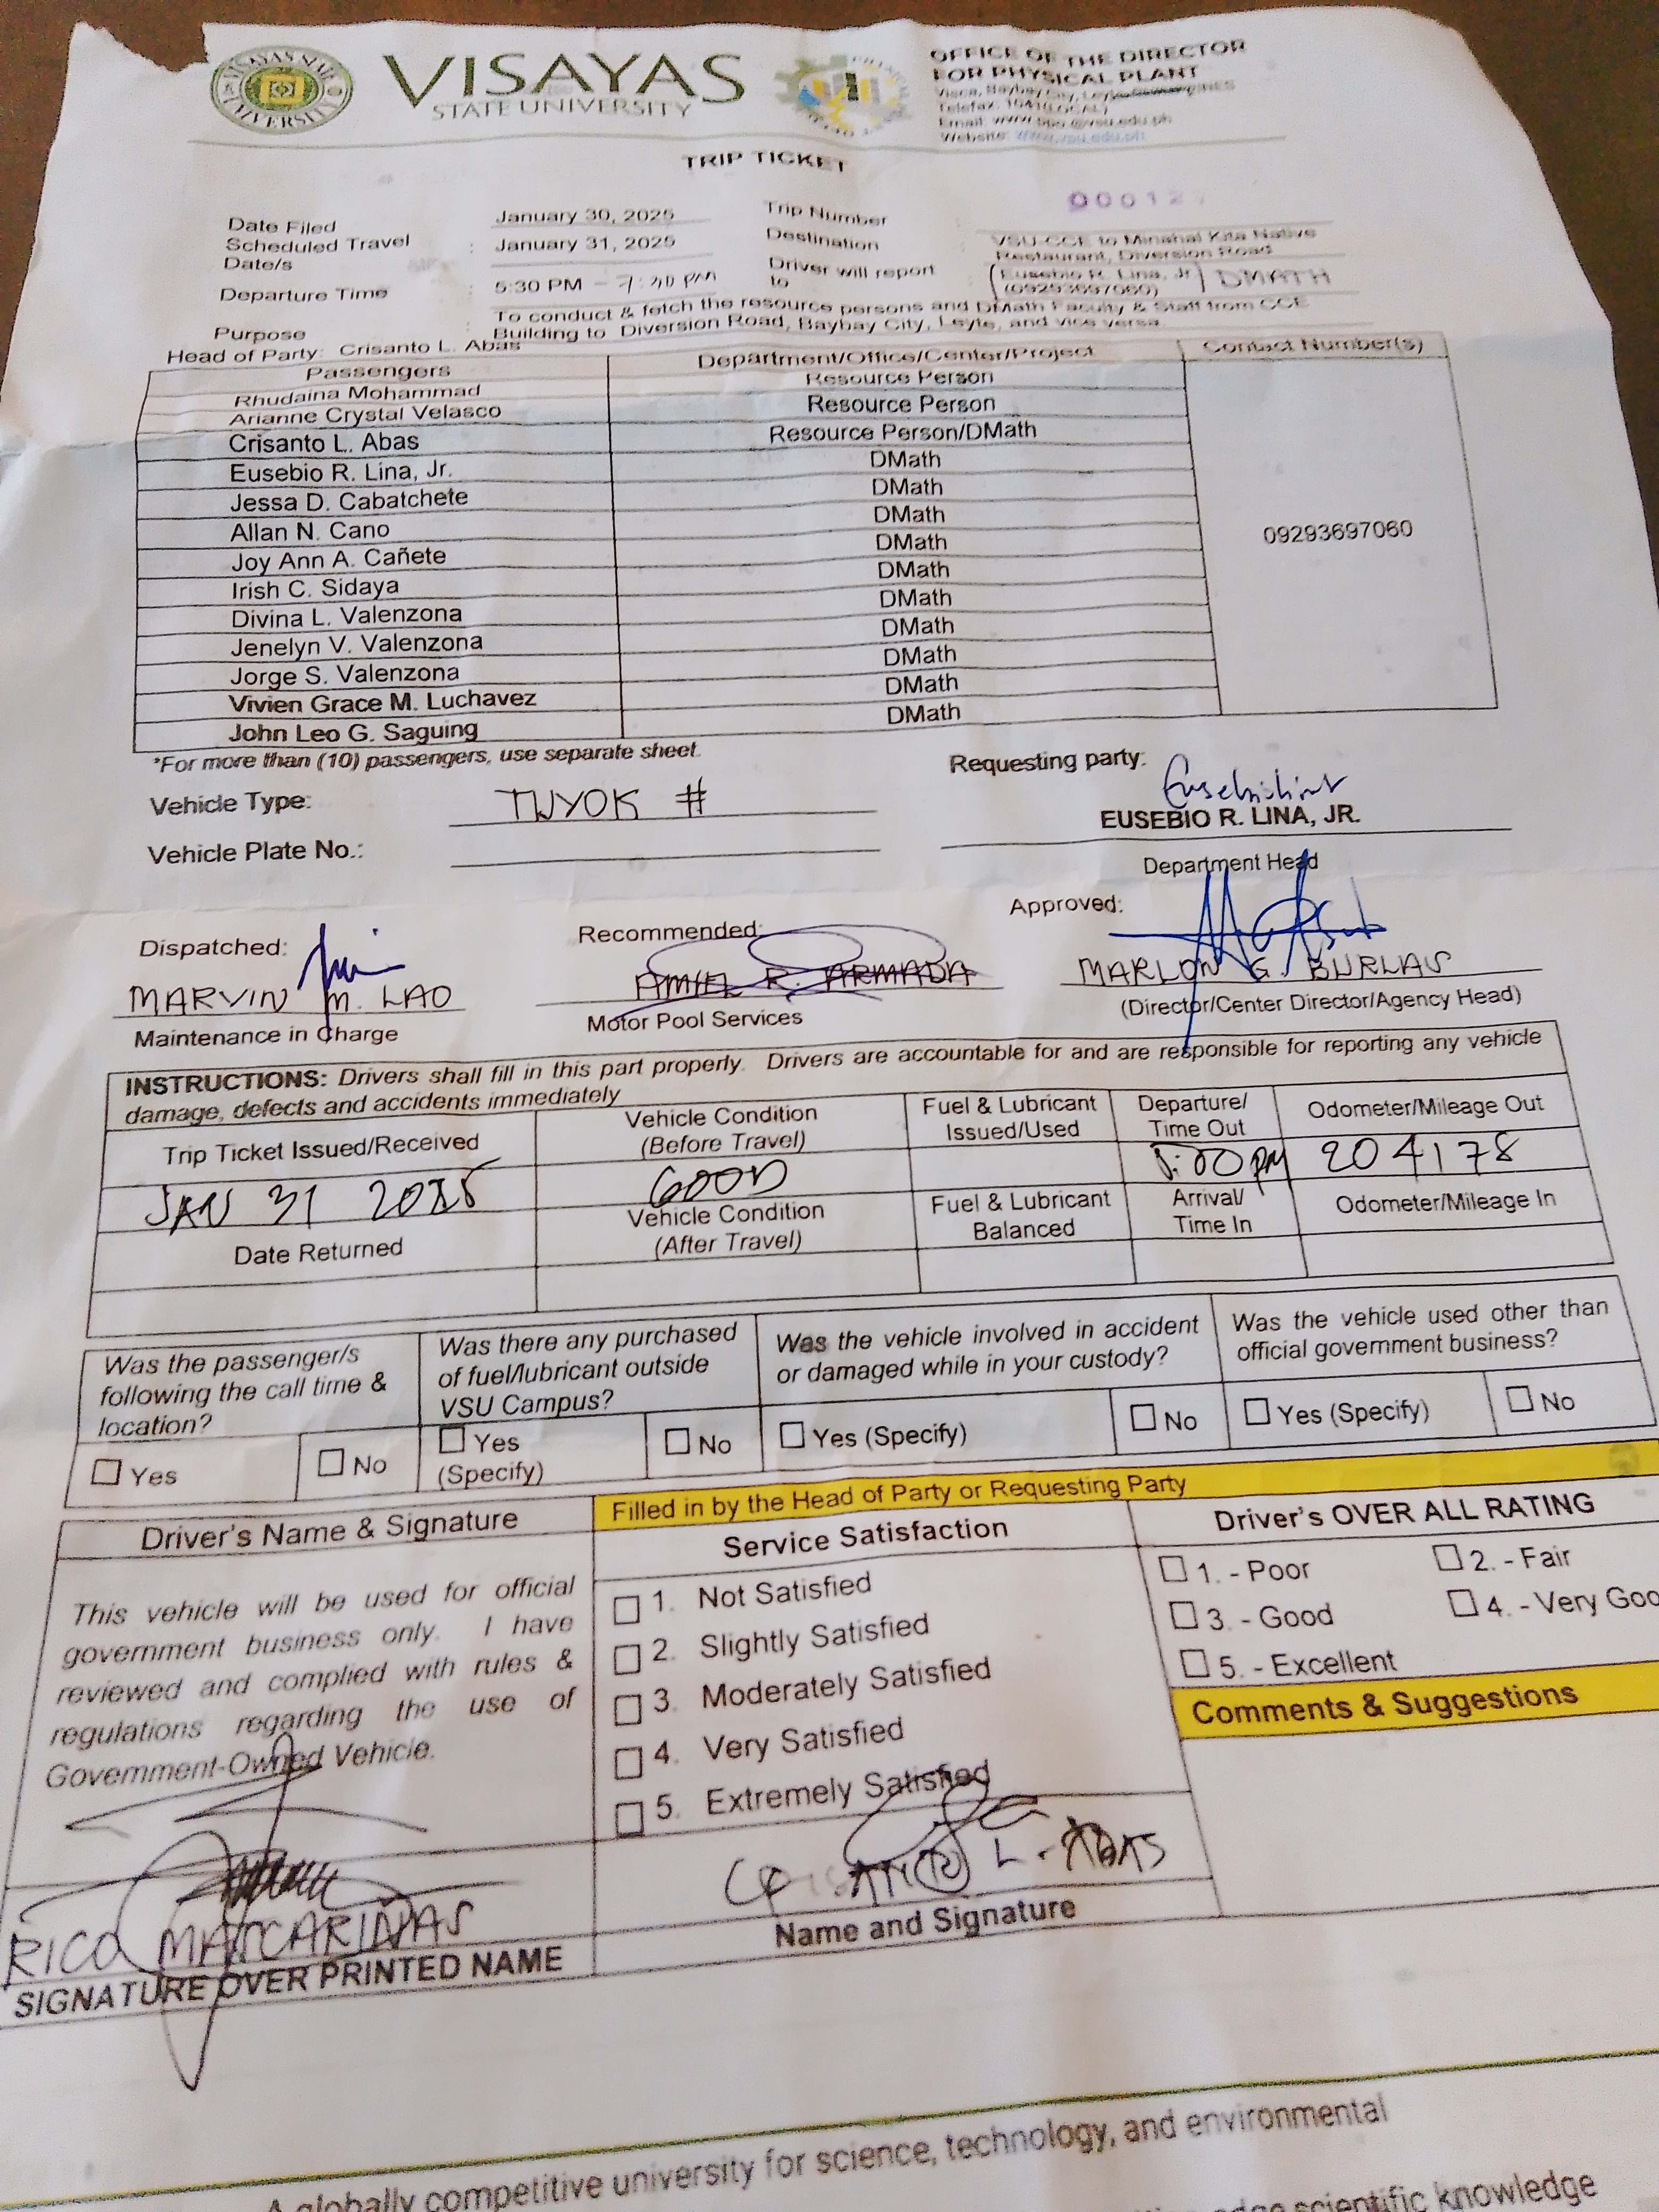 VISAYAS STATE UNIVERSITY
VISAYAS
STATE UNIVERSITY
OFFICE OF THE DIRECTOR
FOR PHYSICAL PLANT
Visca, Baybay City, Leyte
Telefax: 1041(LOCAL)
Email: www.ppo@vsu.edu.ph
Website: www.vsu.edu.ph
TRIP TICKET
Date Filed January 30, 2025 Trip Number 00012
Scheduled Travel Date/s : January 31, 2025 Destination VSU-CCE to Minahal Kita Native Restaurant, Diversion Road
Departure Time : 5:30 PM – 7:30 PM Driver will report to (Eusebio R. Lina, Jr) DMATH
(09293697060)
Purpose : To conduct & fetch the resource persons and DMath Faculty & Staff from CCE
Building to Diversion Road, Baybay City, Leyte, and vice versa
Head of Party: Crisanto L. Abas
Passengers Department/Office/Center/Project Contact Number(s)
Rhudaina Mohammad Resource Person
Arianne Crystal Velasco Resource Person
Crisanto L. Abas Resource Person/DMath
Eusebio R. Lina, Jr. DMath
Jessa D. Cabatchete DMath
Allan N. Cano DMath
Joy Ann A. Cañete DMath 09293697060
Irish C. Sidaya DMath
Divina L. Valenzona DMath
Jenelyn V. Valenzona DMath
Jorge S. Valenzona DMath
Vivien Grace M. Luchavez DMath
John Leo G. Saguing DMath
*For more than (10) passengers, use separate sheet.
Requesting party:
Vehicle Type: TUYOK #
EUSEBIO R. LINA, JR.
Vehicle Plate No.:
Department Head
Dispatched: Recommended: Approved:
MARVIN M. LAO AMIEL R. ARMADA MARLON G. BURLAS
Maintenance in Charge Motor Pool Services (Director/Center Director/Agency Head)
INSTRUCTIONS: Drivers shall fill in this part properly. Drivers are accountable for and are responsible for reporting any vehicle
damage, defects and accidents immediately
Trip Ticket Issued/Received Vehicle Condition (Before Travel) Fuel & Lubricant Issued/Used Departure/ Time Out Odometer/Mileage Out
JAN 31 2025 GOOD 5:00 PM 204178
Date Returned Vehicle Condition (After Travel) Fuel & Lubricant Balanced Arrival/ Time In Odometer/Mileage In
Was the passenger/s
following the call time &
location?
Was there any purchased
of fuel/lubricant outside
VSU Campus?
Was the vehicle involved in accident
or damaged while in your custody?
Was the vehicle used other than
official government business?
Yes No Yes (Specify) No Yes (Specify) No Yes (Specify) No
Filled in by the Head of Party or Requesting Party
Driver's Name & Signature
Service Satisfaction
Driver's OVER ALL RATING
This vehicle will be used for official
government business only. I have
reviewed and complied with rules &
regulations regarding the use of
Government-Owned Vehicle.
1. Not Satisfied
2. Slightly Satisfied
3. Moderately Satisfied
4. Very Satisfied
5. Extremely Satisfied
1. - Poor 2. - Fair
3. - Good 4. - Very Goo
5. - Excellent
Comments & Suggestions
CRISANTO L. ABAS
Name and Signature
RICO
SIGNATURE OVER PRINTED NAME
A globally competitive university for science, technology, and environmental
scientific knowledge